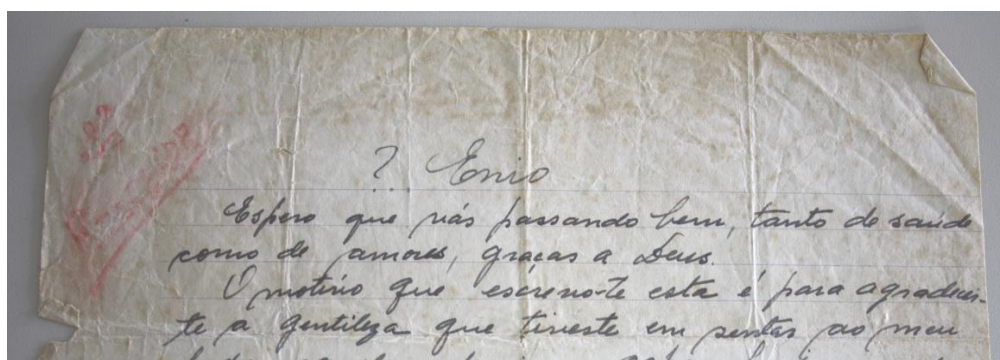 ? Enio
Espero que vás passando bem, tanto de saúde
como de amores, graças a Deus.
O motivo que escrevo-te esta é para agradecer-
te a gentileza que tiveste em sentar ao meu